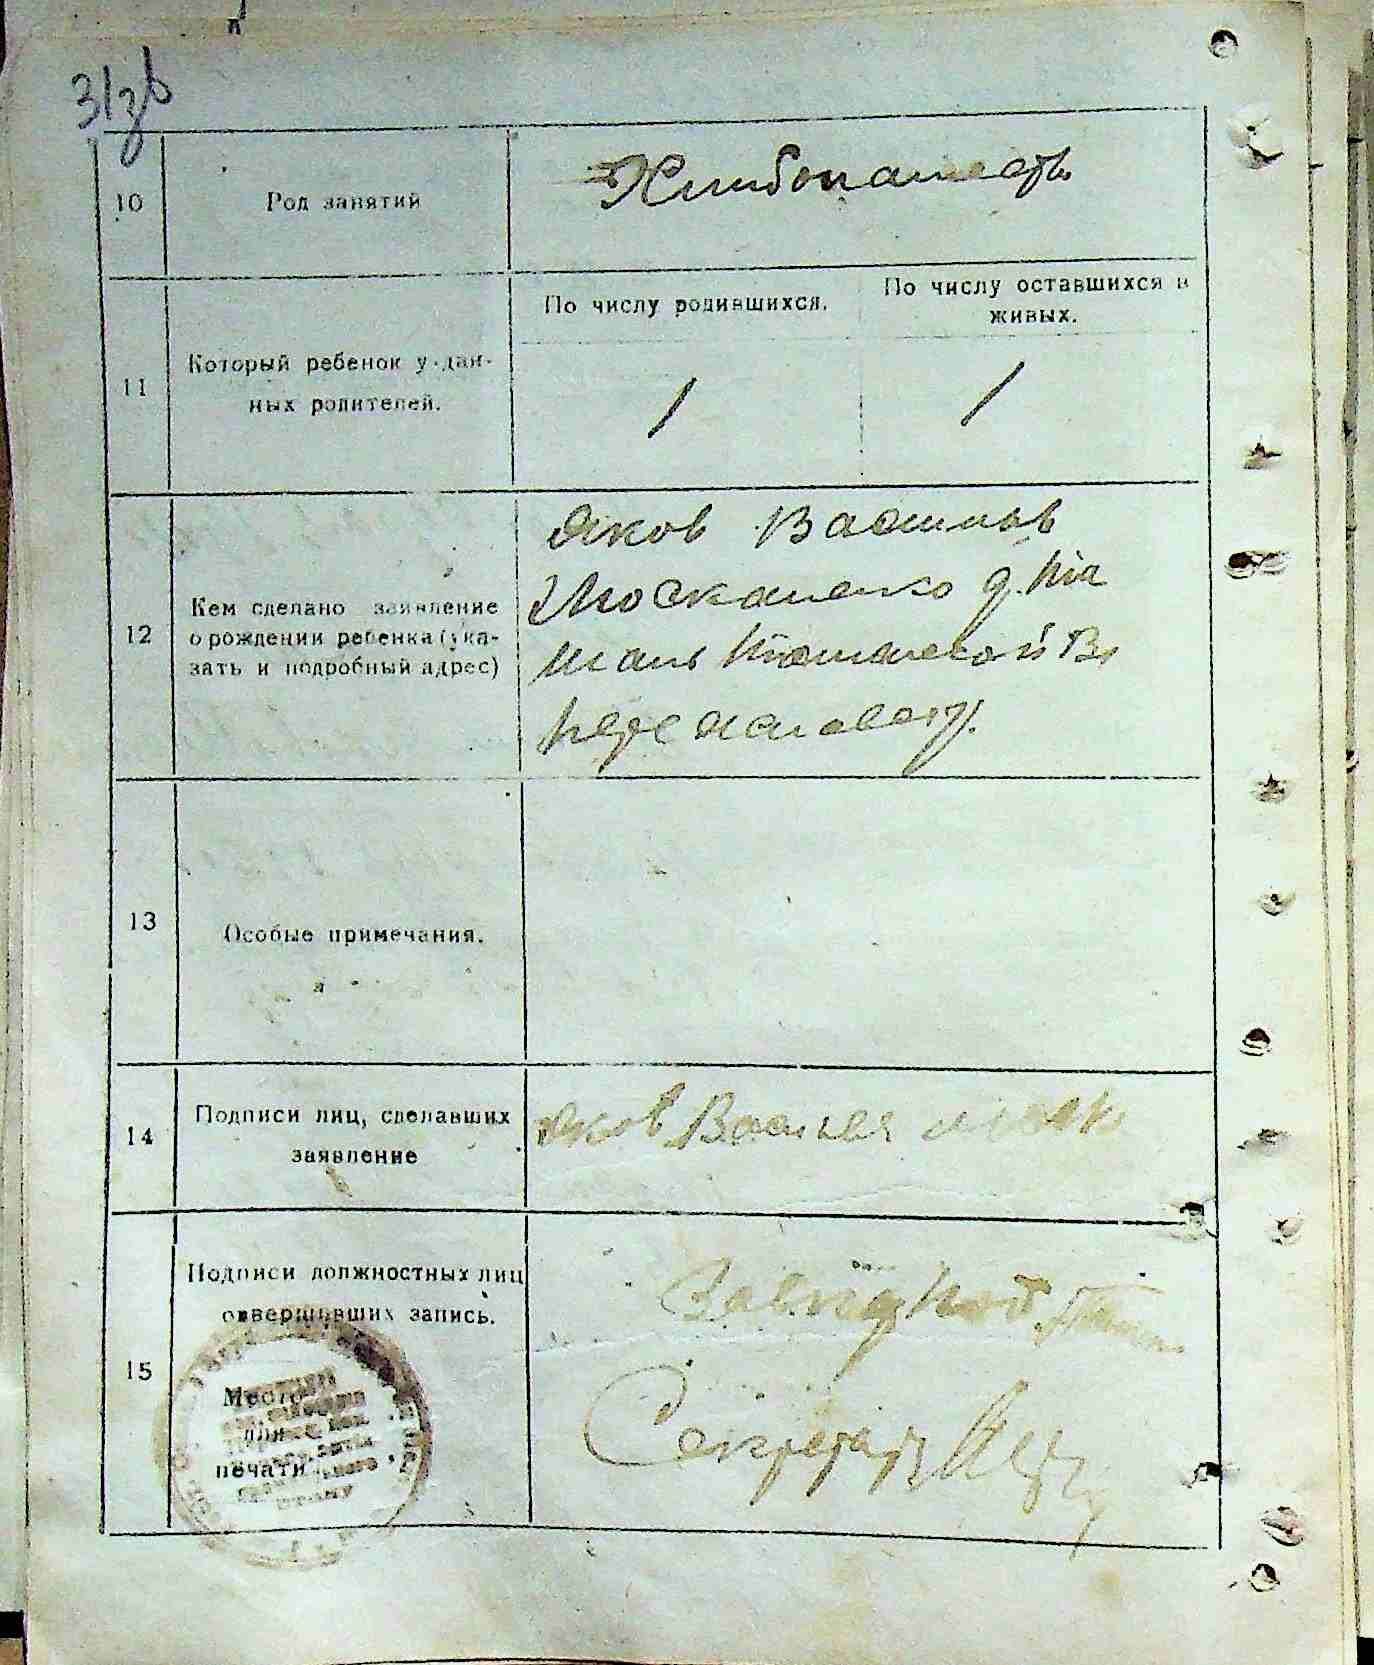 31зв
10
Род занятий
Хлебопашеств
11
Который ребенок у дан-
ных родителей.
По числу родившихся.
По числу оставшихся в
живых.
1
1
12
Кем сделано заявление
о рождении ребенка (ука-
зать и подробный адрес)
Яков Васильев
Москаленко д.
Вл
13
Особые примечания.
14
Подписи лиц, сделавших
заявление
Яков Васильев Моск
15
Подписи должностных лиц
совершивших запись.
Место
для
печати
Секретарь